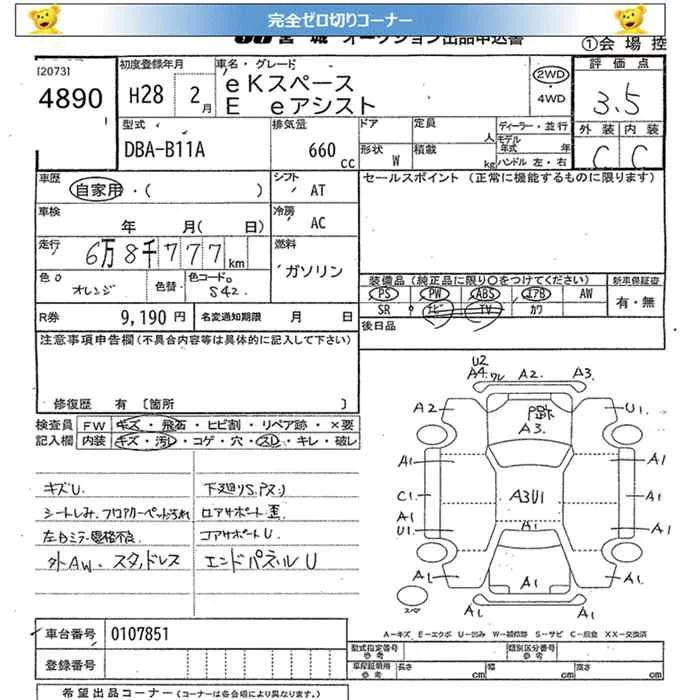 完全ゼロ切りコーナー
宮城 オークション出品申込書
①会場控
[2073]
4890
初度登録年月
H28 2月
車名・グレード
eKスペース
E eアシスト
2WD
4WD
評価点
3.5
外装 内装
C C
型式
DBA-B11A
排気量
660 cc
ドア
定員 人
形状 W
積載 kg
ディーラー・並行
モデル年式 年
ハンドル 左・右
車歴
自家用・( )
シフト
AT
セールスポイント (正常に機能するものに限ります)
車検
年 月( 日)
冷房
AC
走行
6万8千777km
燃料
ガソリン
色
オレンジ
色替
色コードNo
S42.
装備品 (純正品に限り○をつけてください)
新車保証書
PS PW ABS エアB AW
SR ナビ TV カワ
有・無
R券 9,190円
名変通知期限 月 日
後日品
注意事項申告欄(不具合内容等は具体的に記入して下さい)
修復歴 有 〔箇所 〕
検査員記入欄
FW キズ・飛石・ヒビ割・リペア跡・×要
内装 キズ・汚レ・コゲ・穴・スレ・キレ・破レ
キズU.
シートしみ.フロアカーペット汚れ
外AW、スタッドレス
下廻りS.Pヌリ
ロアサポート歪
コアサポートU.
エンドパネルU
U2
A4 ワレ A2. A3.
A2 P跡 U1
A3.
A1 A1
C1 A3U1 A1
A1
U1 A1 A1
A1 A1 A1
スペア A1 A1
A-キズ E-エクボ U-凹み W-補修跡 S-サビ C-腐食 XX-交換済
車台番号 0107851
登録番号
型式指定番号 参考
類別区分番号 参考
車庫証明用 参考 長さ cm 幅 cm 高さ cm
希望出品コーナー(コーナーは各会場により異なります。)